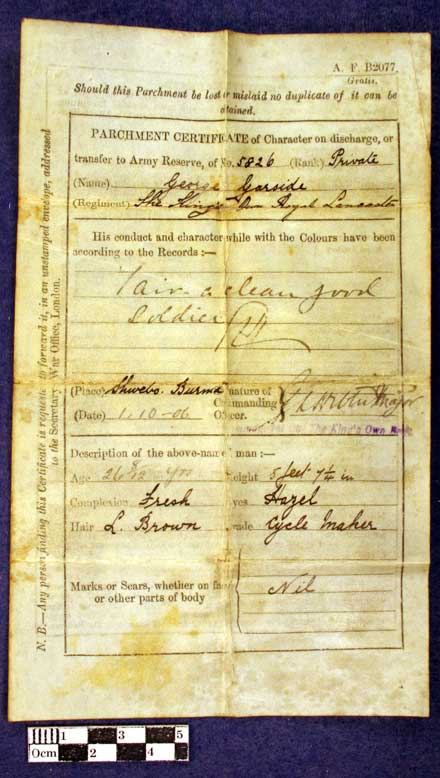 A. F. B2077.
Gratis.
Should this Parchment be lost or mislaid no duplicate of it can be
obtained.
PARCHMENT CERTIFICATE of Character on discharge, or
transfer to Army Reserve, of No. 5826 (Rank) Private
(Name) George Garside
(Regiment) The King's Own Royal Lancaster
His conduct and character while with the Colours have been
according to the Records :—
Fair a clean good
Soldier
(Place) Shwebo. Burma nature of
Commanding Major
(Date) 1.10-06 Officer.
The King's Own
Description of the above-named man :—
Age 26 Yrs Height 5 feet 7¼ in
Complexion Fresh Eyes Hazel
Hair L. Brown Trade Cycle Maker
Marks or Scars, whether on face
or other parts of body Nil
N. B.—Any person finding this Certificate is requested to forward it, in an unstamped envelope, addressed
to the Secretary, War Office, London.
1 3 5
0cm 2 4